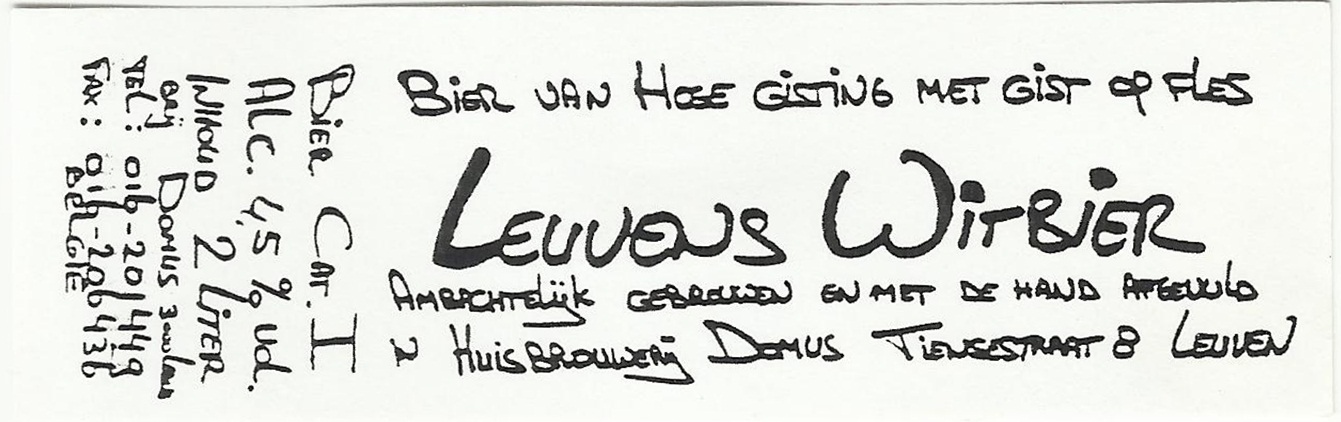 Bier van Hoge Gisting met Gist op Fles
Leuvens Witbier
Ambachtelijk gebrouwen en met de hand afgevuld
in Huisbrouwerij Domus Tiensestraat 8 Leuven
Bier Cat. I
Alc. 4,5 % vol.
Inhoud 2 liter
Brij Domus 3000 Leuven
Tel: 016-201449
Fax: 016-206436
België